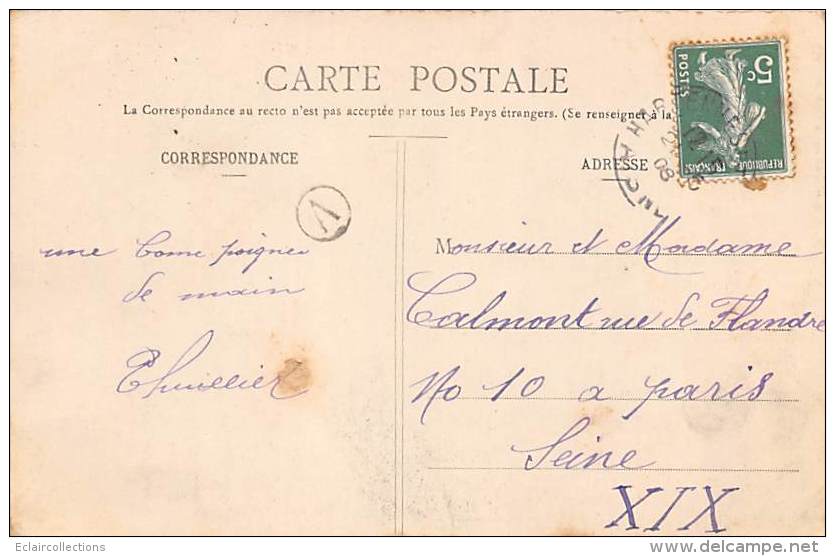 CARTE POSTALE
La Correspondance au recto n'est pas acceptée par tous les Pays étrangers. (Se renseigner à la
CORRESPONDANCE
ADRESSE
5c
POSTES
REPUBLIQUE
FRANÇAISE
08
A
une bonne poignee
de main
Thuillier
Monsieur et Madame
Calmont rue de Flandre
No 10 a paris
Seine
XIX
Eclaircollections
www.delcampe.net